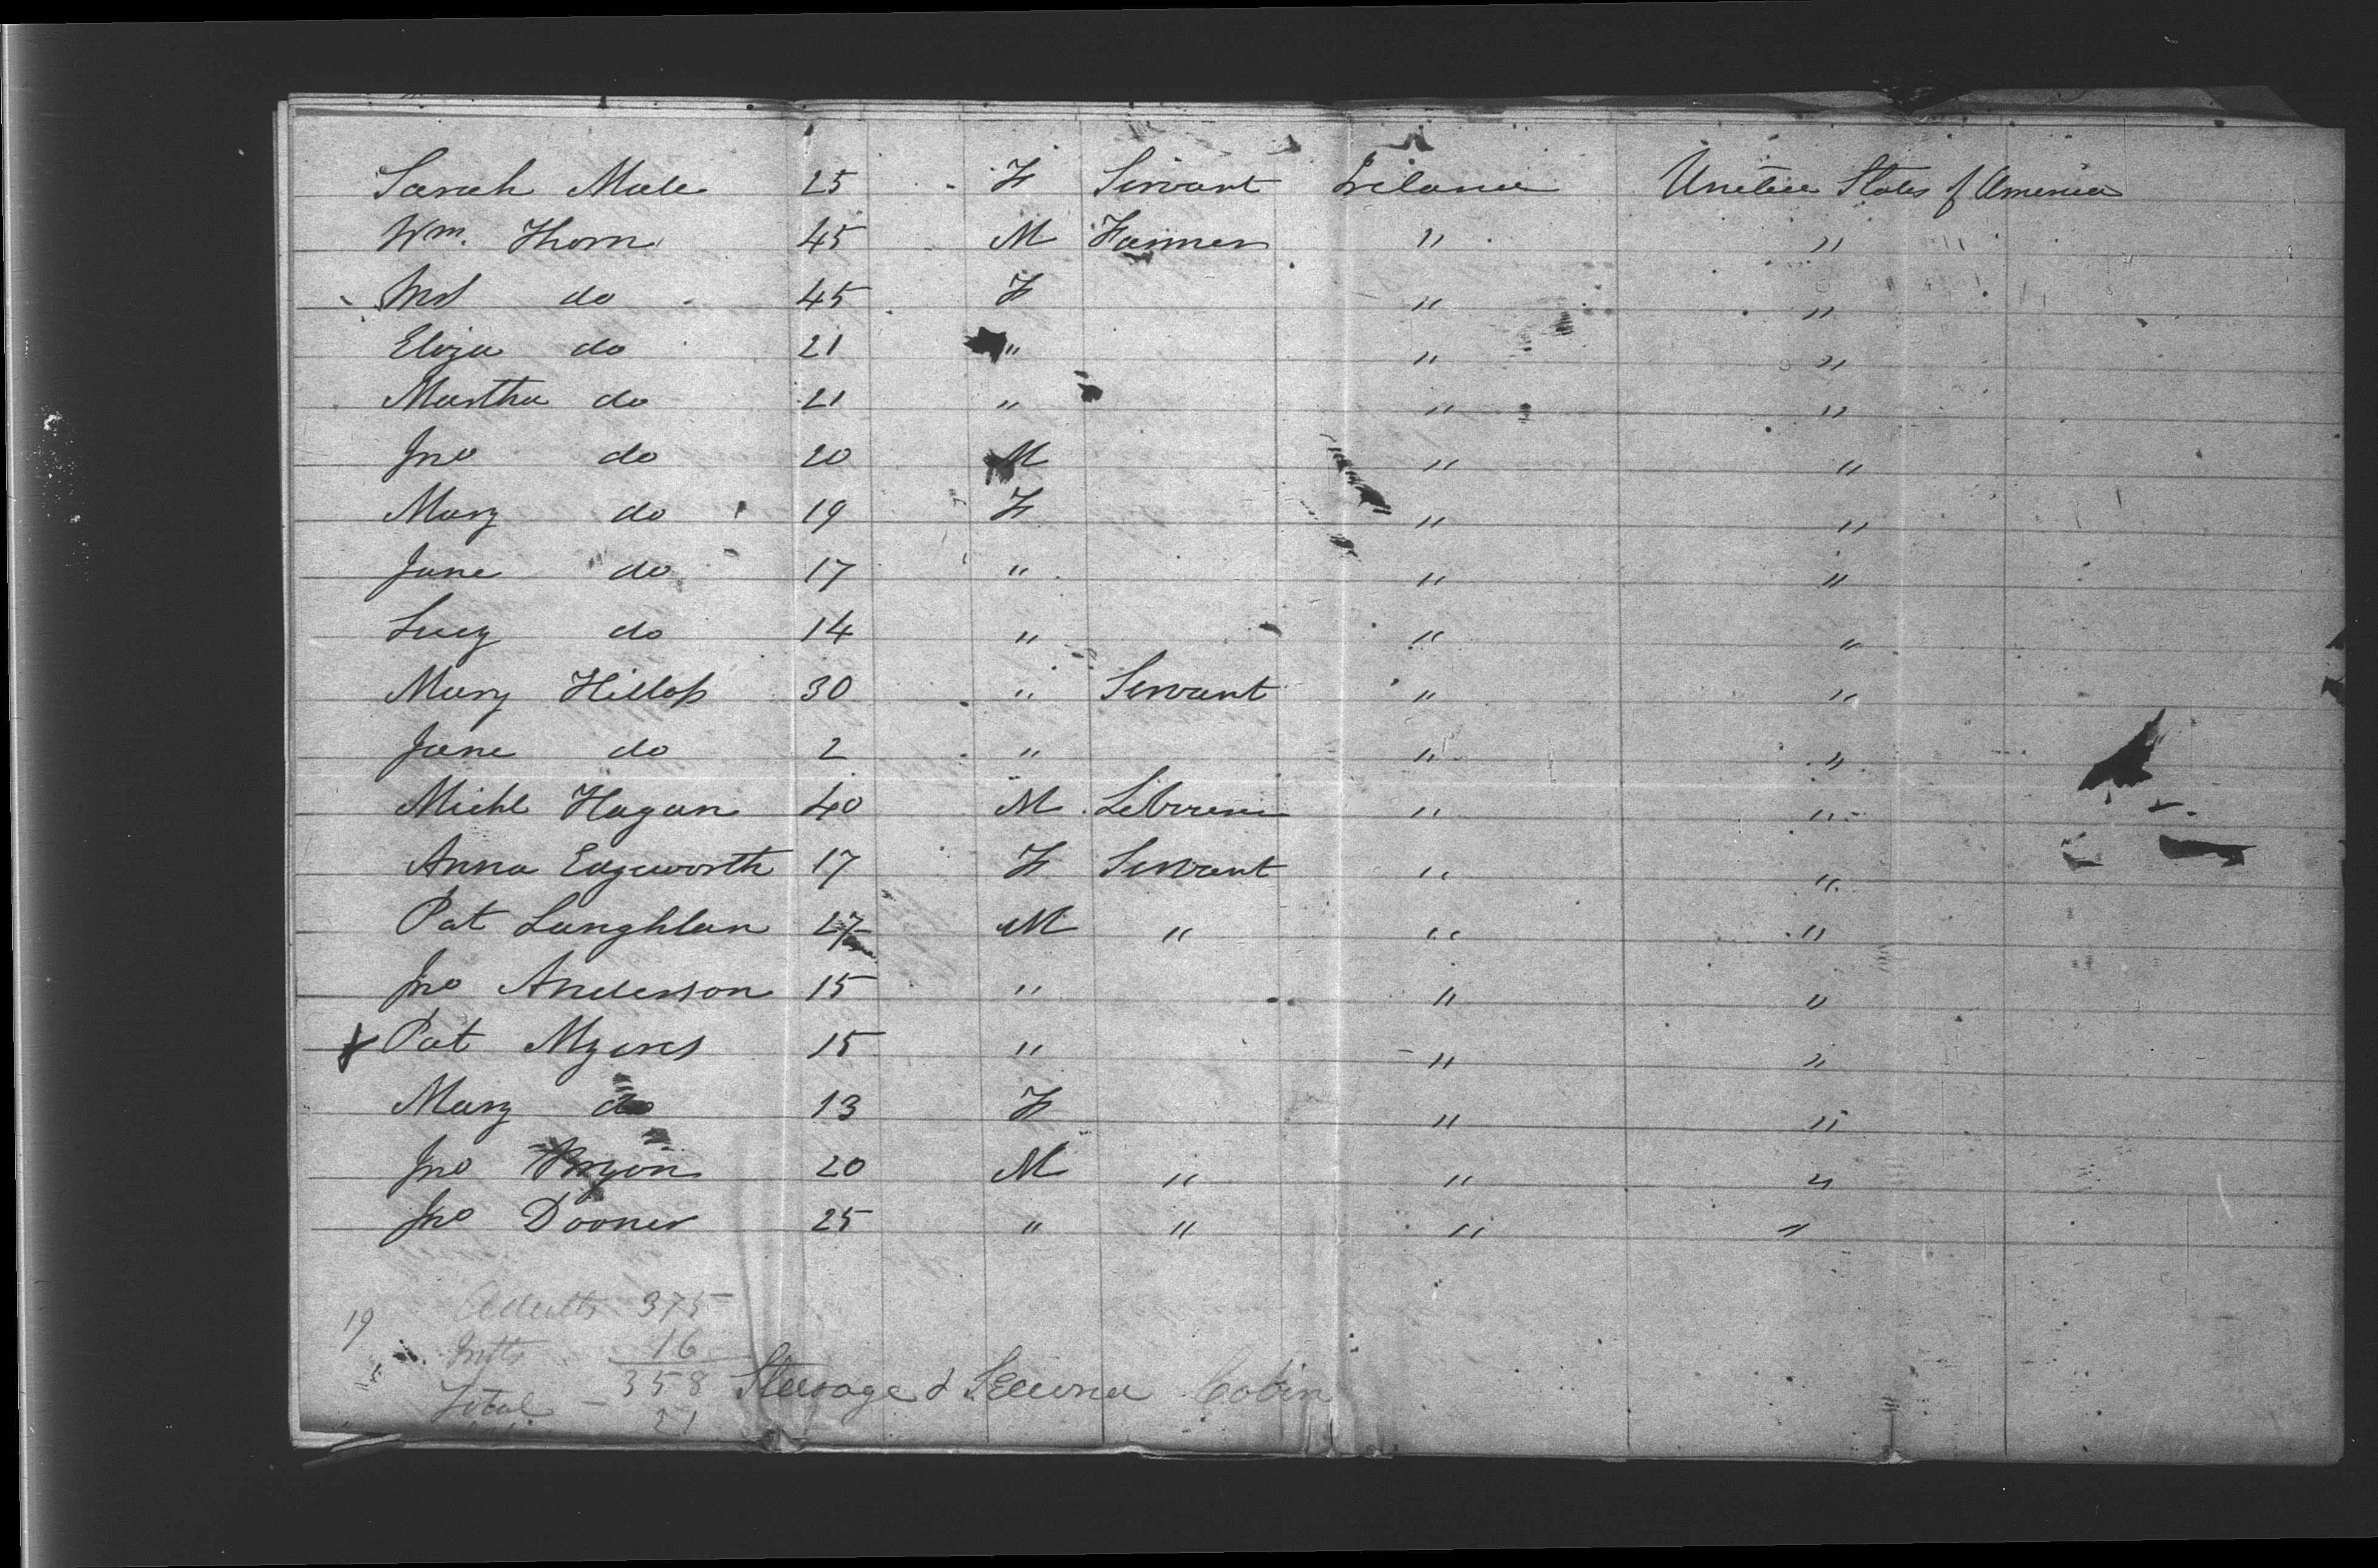 Sarah Male 25 F Servant Ireland United States of America
Wm. Thorn 45 M Farmer " "
Mrs do 45 F " "
Eliza do 21 " " "
Martha do 21 " " "
Jno do 20 M " "
Mary do 19 F " "
Jane do 17 " " "
Lucy do 14 " " "
Mary Hillop 30 " Servant " "
Jane do 2 " " "
Michl Hagan 40 M " "
Anna Edgeworth 17 F Servant " "
Pat Langhlan 27 M " " "
Jno Anderson 15 " " "
Pat Myers 15 " " "
Mary do 13 F " "
Jno 20 M " " "
Jno Dooner 25 " " " "
Adults 375
19
16
358 Steerage & Second Cabin
Total - 21